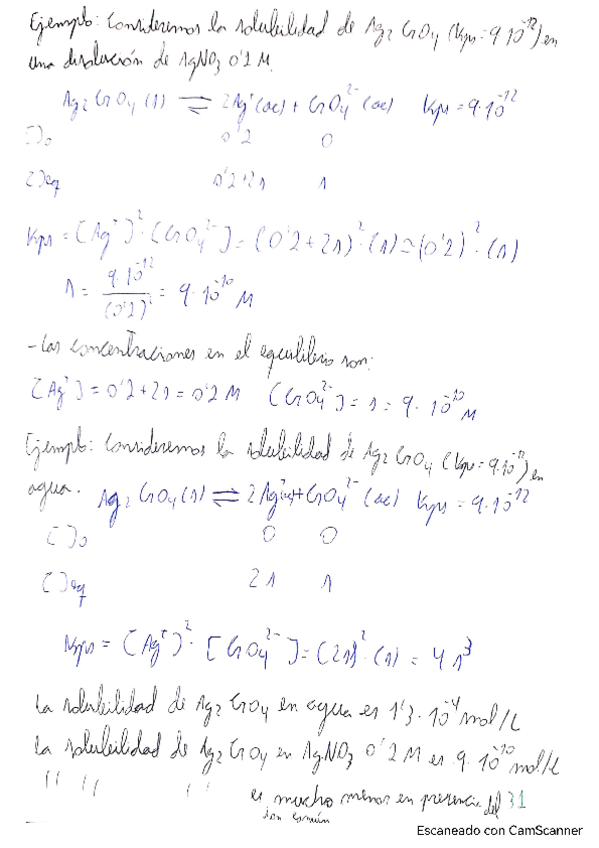 Ejemplo: Consideremos la solubilidad de Ag₂CrO₄ (Kps = 9·10⁻¹²) en
una disolución de AgNO₃ 0'1 M.
Ag₂CrO₄(s) ⇌ 2Ag⁺(ac) + CrO₄²⁻(ac) Kps = 9·10⁻¹²
[ ]₀ 0'2 0
[ ]eq 0'2+2s s
Kps = [Ag⁺]²·[CrO₄²⁻] = (0'2+2s)²·(s) ≃ (0'2)²·(s)
s = 9·10⁻¹²/(0'2)² = 9·10⁻¹⁰ M
- Las concentraciones en el equilibrio son:
[Ag⁺] = 0'2+2s = 0'2 M [CrO₄²⁻] = s = 9·10⁻¹⁰ M
Ejemplo: Consideremos la solubilidad de Ag₂CrO₄ (Kps = 9·10⁻¹²) en
agua. Ag₂CrO₄(s) ⇌ 2Ag⁺(ac) + CrO₄²⁻(ac) Kps = 9·10⁻¹²
[ ]₀ 0 0
[ ]eq 2s s
Kps = [Ag⁺]²·[CrO₄²⁻] = (2s)²·(s) = 4s³
La solubilidad de Ag₂CrO₄ en agua es 1'3·10⁻⁴ mol/L
La solubilidad de Ag₂CrO₄ en AgNO₃ 0'2 M es 9·10⁻¹⁰ mol/L
" " " es mucho menor en presencia del 31
ion común
Escaneado con CamScanner